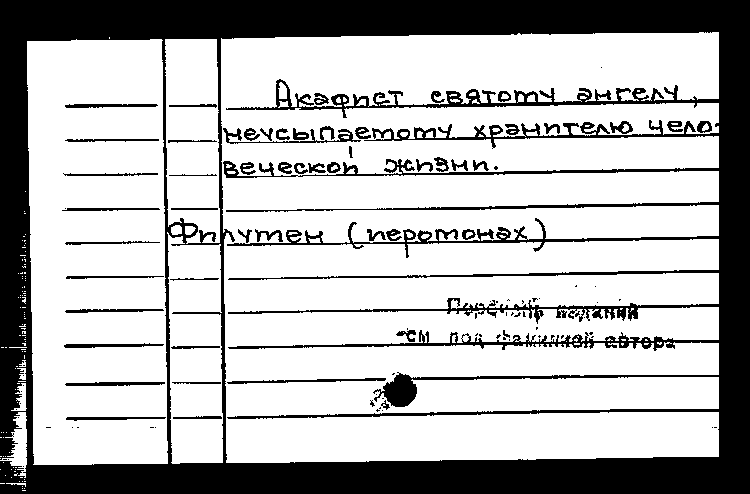 Акафист святому ангелу,
неусыпаемому хранителю чело-
веческой жизни.
Филумен (иеромонах)
Перечень изданий
см под фамилией автора